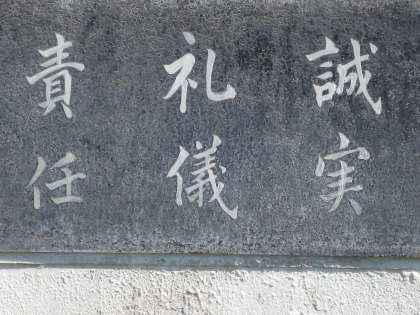 誠実
礼儀
責任